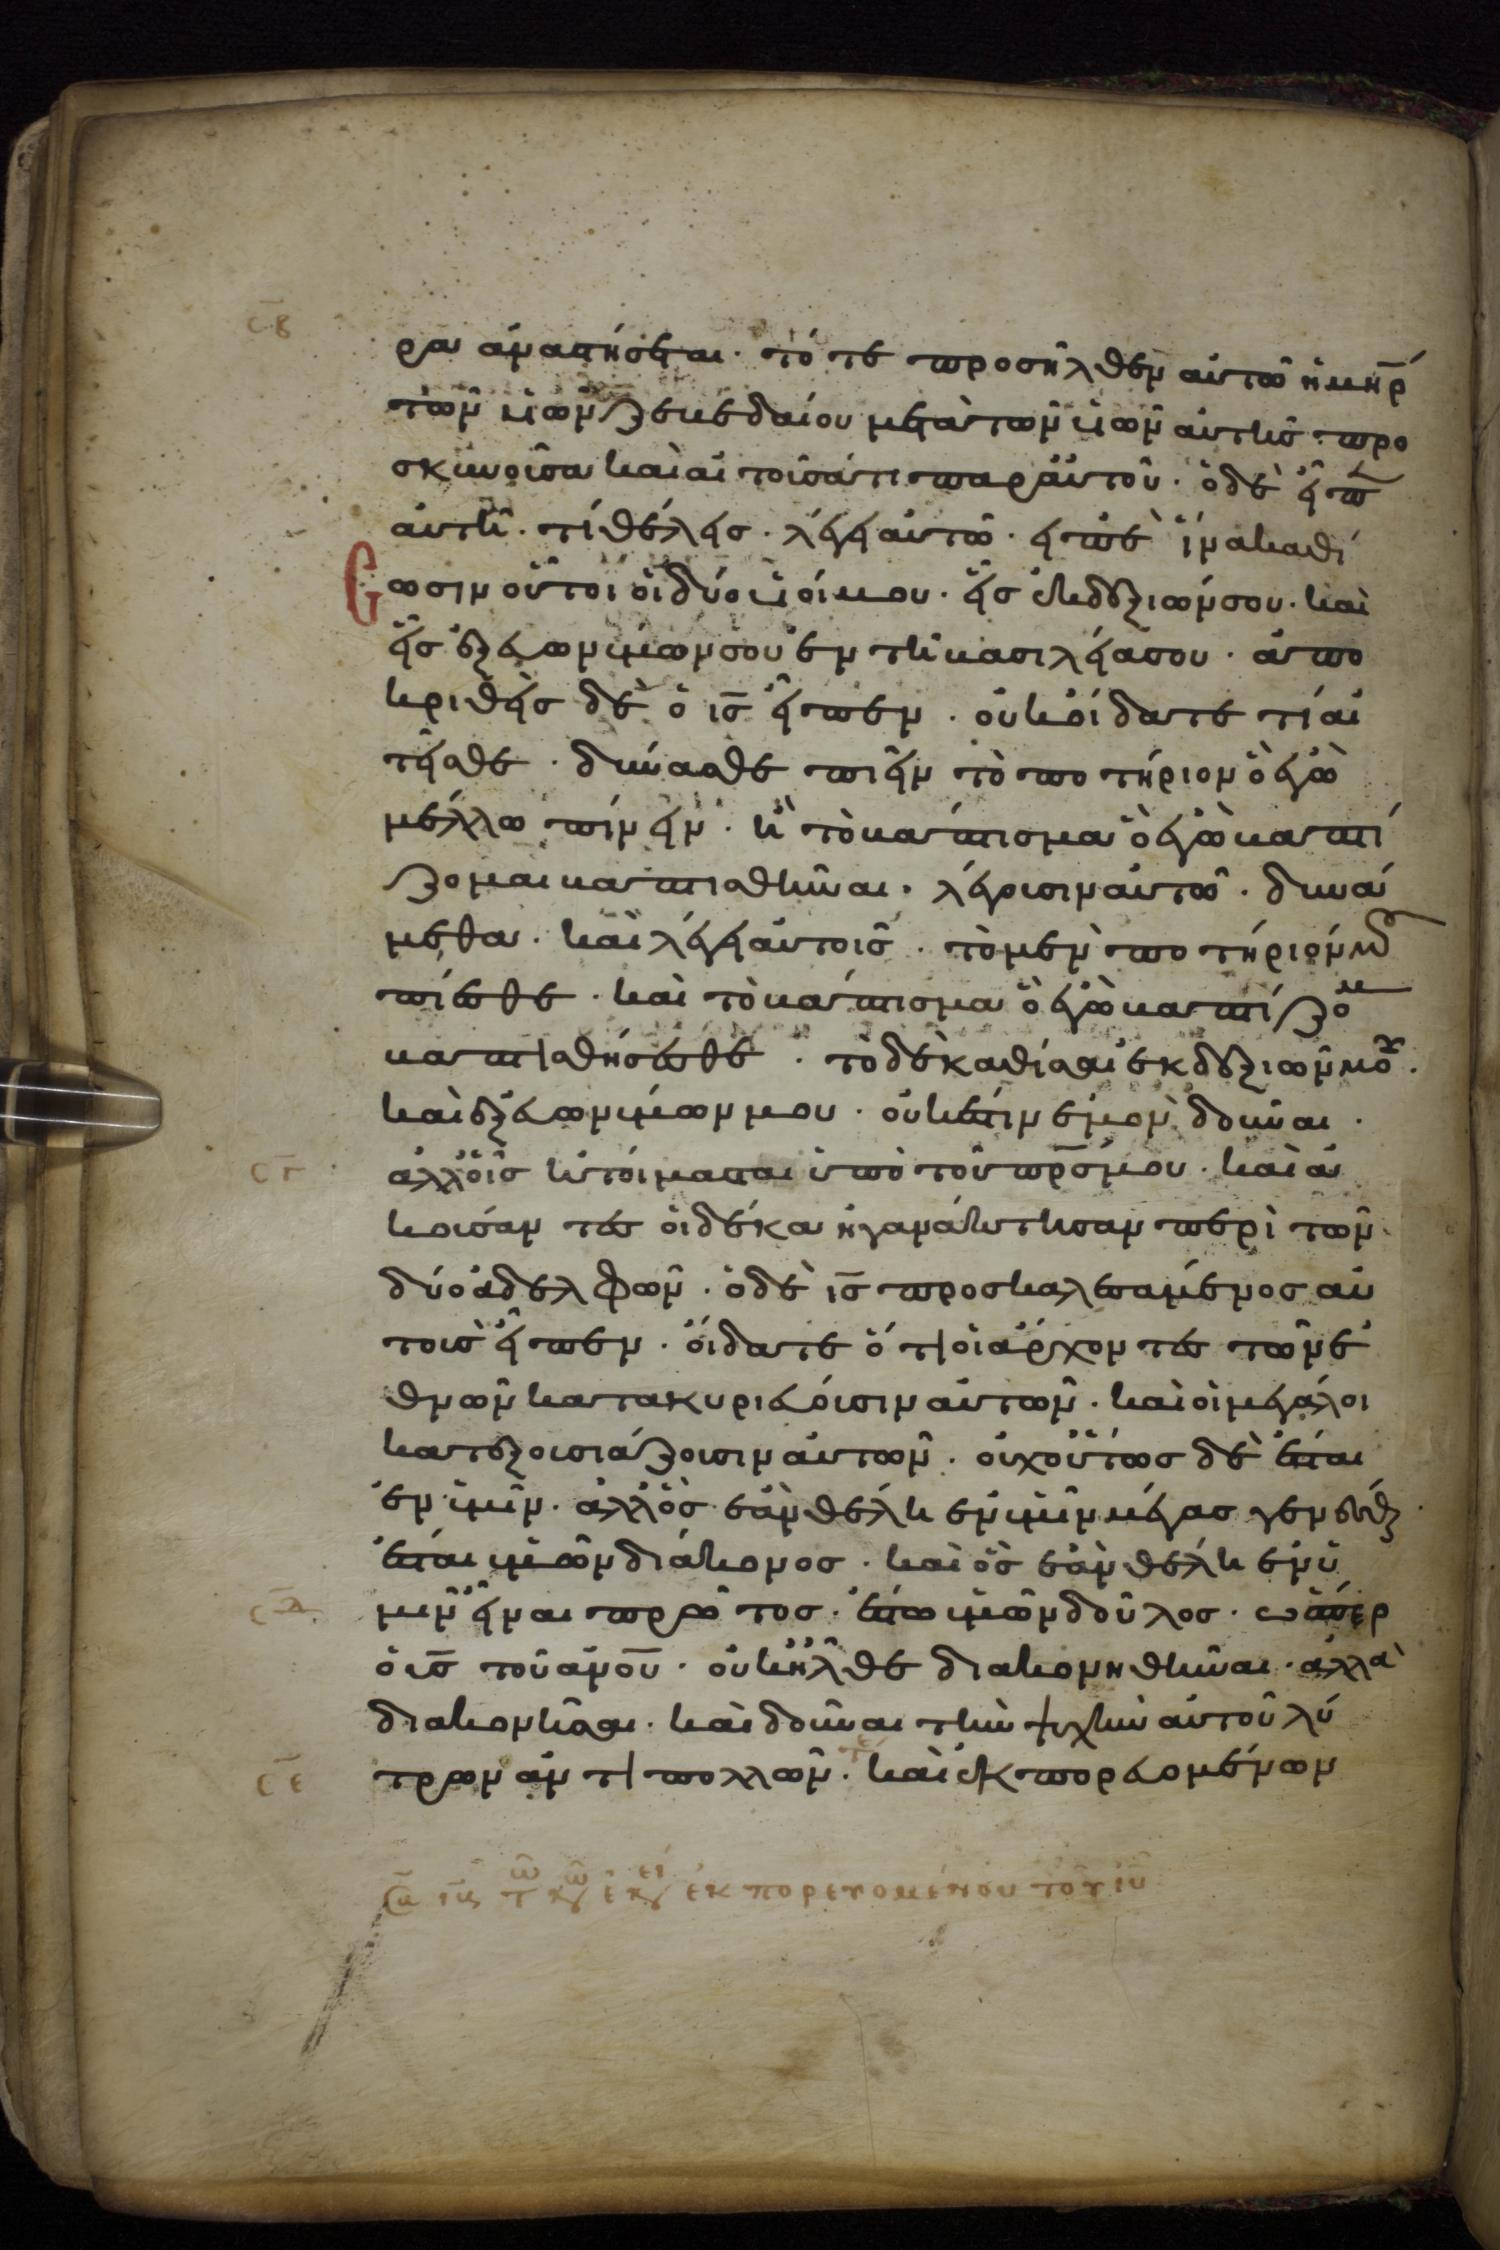 σβ
ρα ἀναστήσεται· τότε προσῆλθεν αὐτῶ ἡ μη̅ρ
τῶν υἱῶν ζεβεδαίου μετὰ τῶν υἱῶν αὐτῆς· προ
σκυνοῦσα καὶ αἰτοῦσά τι παρ αὐτοῦ· ὁ δὲ εἶπ
αὐτῆ· τί θέλεις· λέγει αὐτῶ· εἰπὲ ἵνα καθί
σωσιν οὗτοι οἱ δύο υἱοί μου· εἷς ἐκ δεξιῶν σου· καὶ
εἷς ἐξ εὐωνύμων σου ἐν τῆ βασιλεία σου· ἀπο
κριθεὶς δὲ ὁ ι̅ς εἶπεν· οὐκ οἴδατε τί αἰ
τεῖσθε· δύνασθε πιεῖν τὸ ποτήριον ὃ ἐγὼ
μέλλω πίνειν· ἢ τὸ βάπτισμα ὃ ἐγὼ βαπτί
ζομαι βαπτισθῆναι· λέγουσιν αὐτῶ· δυνά
μεθα· καὶ λέγει αὐτοῖς· τὸ μὲν ποτήριόν μου
πίεσθε· καὶ τὸ βάπτισμα ὃ ἐγὼ βαπτίζομ
βαπτισθήσεσθε· τὸ δὲ καθίσαι ἐκ δεξιῶν μου·
καὶ ἐξ εὐωνύμων μου· οὐκ ἔστιν ἐμὸν δοῦναι·
σγ ἀλλ οἷς ἡτοίμασται ὑπὸ τοῦ πρ̅ς μου· καὶ ἀ
κούσαντες οἱ δέκα ἠγανάκτησαν περὶ τῶν
δύο ἀδελφῶν· ὁ δὲ ι̅ς προσκαλεσάμενος αὐ
τοὺς εἶπεν· οἴδατε ὅτι οἱ ἄρχοντες τῶν ἐ
θνῶν κατακυριεύουσιν αὐτῶν· καὶ οἱ μεγάλοι
κατεξουσιάζουσιν αὐτῶν· οὐχ οὕτως δὲ ἔσται
ἐν ὑμῖν· ἀλλ ὃς ἐὰν θέλη ἐν ὑμῖν μέγας γενέσθαι·
ἔσται ὑμῶν διάκονος· καὶ ὃς ἐὰν θέλη ἐν ὑ
σδ μῖν εἶναι πρῶτος· ἔστω ὑμῶν δοῦλος· ὥσπερ
ὁ υ̅ς τοῦ ἀν̅ου· οὐκ ἦλθε διακονηθῆναι· ἀλλὰ
διακονῆσαι· καὶ δοῦναι τὴν ψυχὴν αὐτοῦ λύ
σε τρον ἀντὶ πολλῶν· καὶ ἐκπορευομένων
ἐκπορευομένου τοῦ ιυ